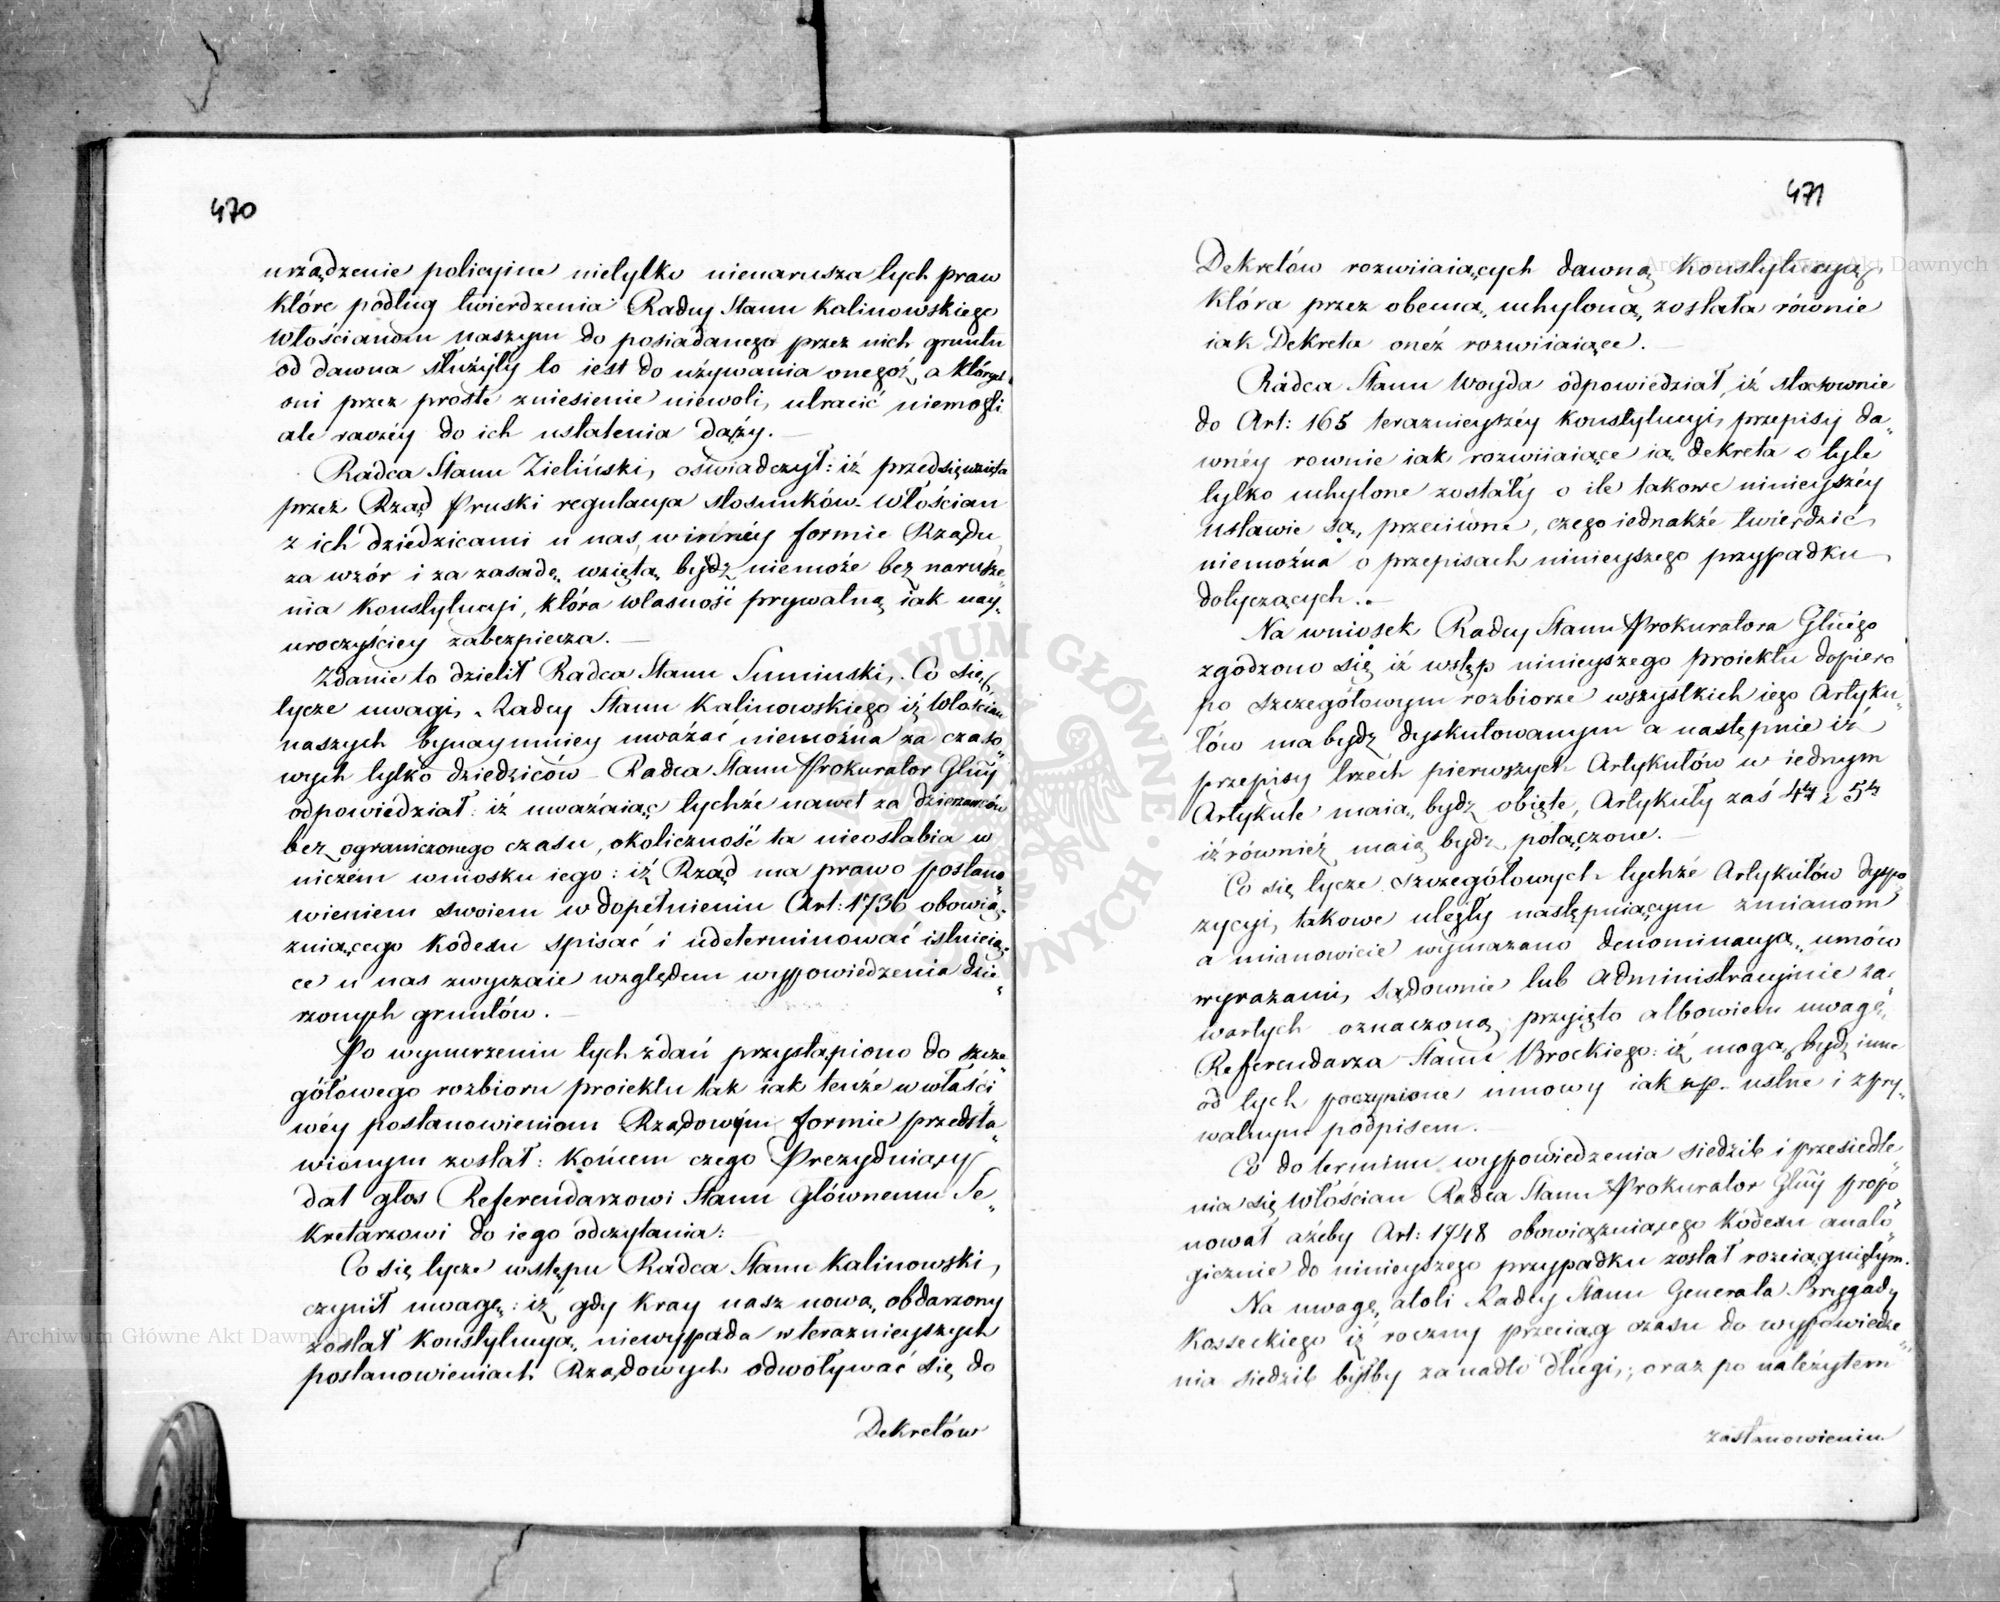 470
urządzenie policyine nietylko nienarusza tych praw
które podług twierdzenia Radcy Stanu Kalinowskiego
Włościanom naszym do posiadanego przez nich gruntu
od dawna służyły to iest do używania onegoż, a których
oni przez proste zniesienie niewoli, utracić niemogli
ale raczéy do ich ustalenia dąży.
Radca Stanu Zieliński, oświadczył: iż przedsięwzięta
przez Rząd Pruski regulacya stosunków Włościan
z ich dziedzicami u nas, w innéy formie Rządu
za wzór i za zasadę wziętą bydź niemoże bez narusze„
nia Konstytucyi, która własność prywatną iak nay„
uroczyściey zabezpiecza.
Zdanie to dzielił Radca Stanu Suminski, Co się
tycze uwagi, Radcy Stanu Kalinowskiego iż Włościan
naszych bynaymniey uważać niemożna za czaso„
wych tylko dziedziców Radca Stanu Prokurator Głny
odpowiedział: iż uważaiąc tychże nawet za dzierżawców
bez ograniczonego czasu, okoliczność ta nieosłabia w
niczém wniosku iego: iż Rząd ma prawo postano„
wieniem swoiem w dopełnieniu Art: 1736 obowią„
zuiącego Kodexu spisać i udeterminować istnieią„
ce u nas zwyczaie względem wypowiedzenia dzie„
rzonych gruntów.
Po wynurzeniu tych zdań przystąpiono do szcze„
gółowego rozbioru proiektu tak iak tenże w właści„
wéy postanowieniom Rządowym formie przedsta„
wionym został: końcem czego Prezyduiący
dał głos Referendarzowi Stanu Głównemu Se„
kretarzowi do iego odczytania:
Co się tycze wstępu Radca Stanu Kalinowski,
czynił uwagę: iż gdy kray nasz nową obdarzony
został Konstytucyą, niewypada w teraznieyszych
postanowieniach Rządowych odwoływać się do
Dekretów
471
Dekretów rozwiiaiących dawną Konstytucyą
która przez obecną uchyloną została równie
iak Dekreta onéż rozwiiaiące.
Radca Stanu Woyda odpowiedział, iż stosownie
do Art: 165 teraznieyszéy Konstytucyi, przepisy da„
wnéy rownie iak rozwiiaiące ią dekreta o tyle
tylko uchylone zostały o ile takowe ninieyszéy
ustawie są, przeciwne, czego iednakże twierdzić
niemożna o przepisach ninieyszego przypadku
dotyczących.
Na wniosek Radcy Stanu Prokuratora Głnego
zgodzono się iż wstęp ninieyszego proiektu dopiero
po szczegółowym rozbiorze wszystkich iego Artyku„
łów ma bydź dyskutowanym a następnie iż
przepisy trzech pierwszych Artykułów w iednym
Artykule maią bydź obięte, Artykuły zaś 4ty i 5ty
iż również maią bydź połączone.
Co się tycze szczegółowych tychże Artykułów dyspo„
zycyi, takowe uległy następuiącym zmianom
a mianowicie wymazano denominacyą umów
wyrazami, sądownie lub administracyinie za„
wartych oznaczoną; przyięto albowiem uwagę,
Referendarza Stanu Brockiego: iż mogą bydź inne
od tych poczynione umowy iak np. ustne i z pry„
watnym podpisem.
Co do terminu wypowiedzenia siedzib i przesiedle„
nia się Włościan Radca Stanu Prokurator Głny propo„
nował ażeby Art: 1748 obowiązuiącego Kodexu analo„
gicznie do ninieyszego przypadku został rozciągniętym.
Na uwagę, atoli Radcy Stanu Generała Brygady
Kosseckiego iż roczny przeciąg czasu do wypowiedze„
nia siedzib byłby zanadto długi; oraz po należytem
zastanowieniu